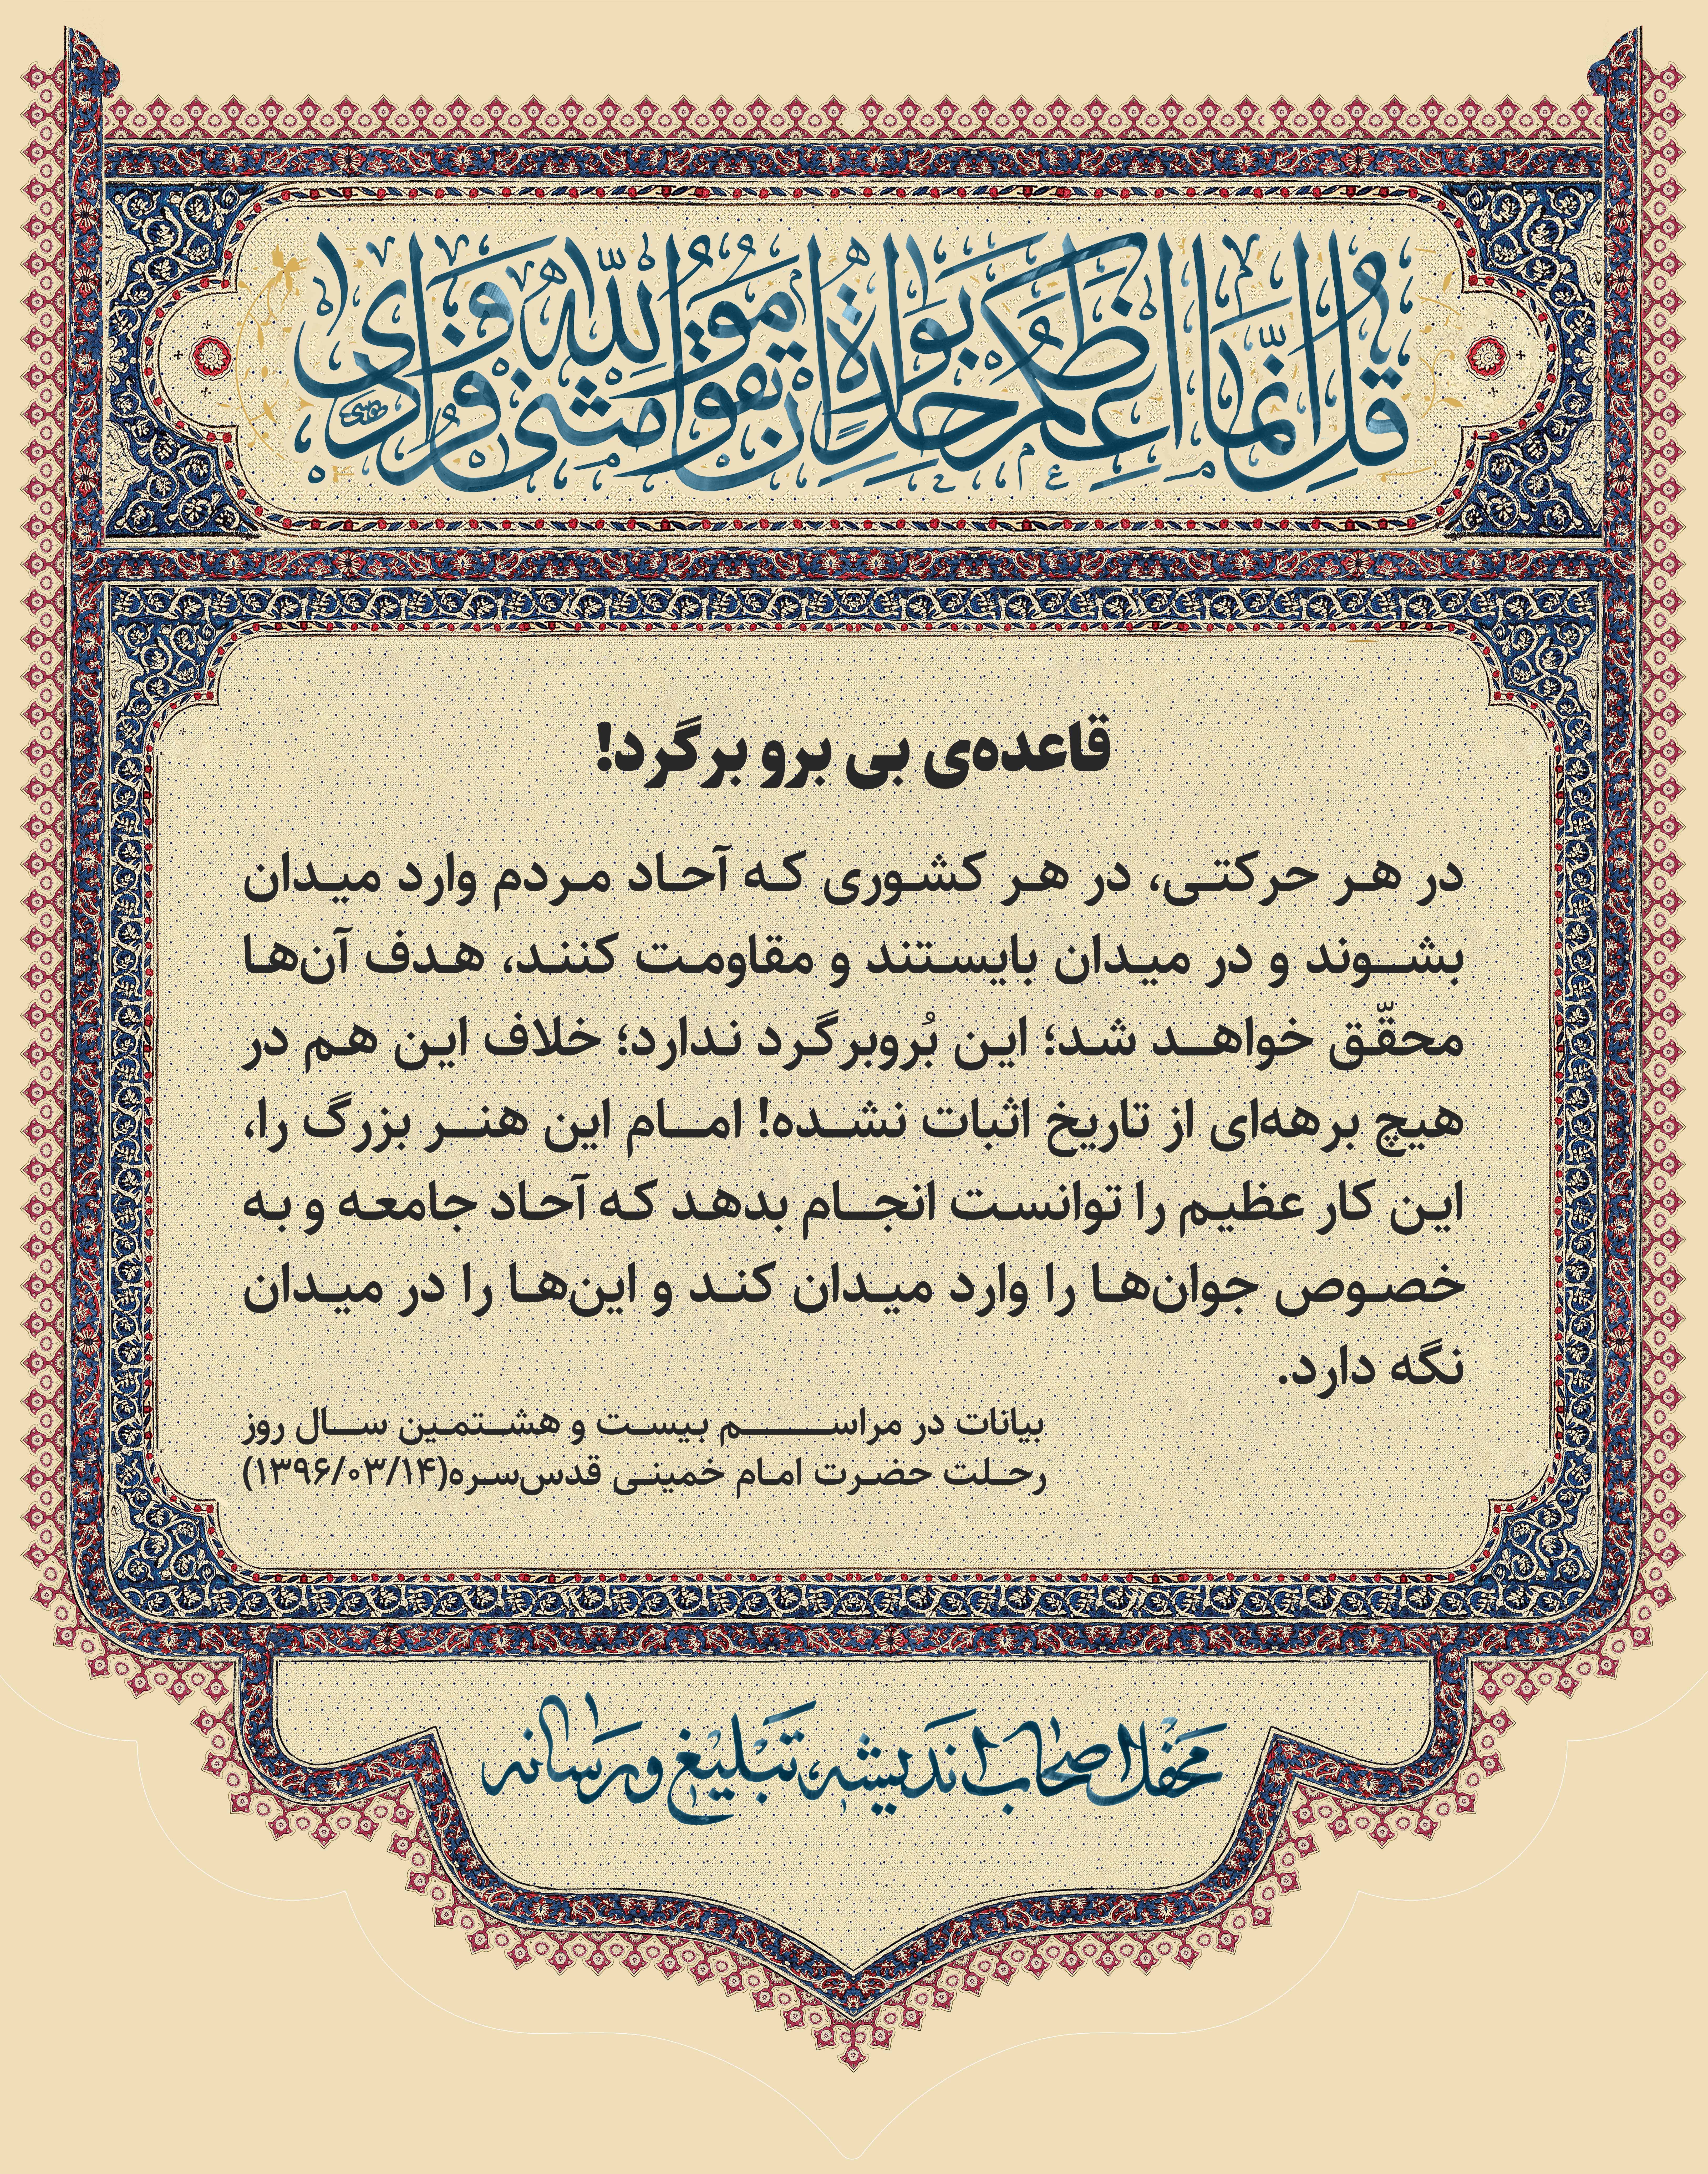 قُل اِنَّما اَعِظُکُم بِواحِدَةٍ اَن تَقوموا لِلّٰهِ مَثنیٰ وَ فُرادیٰ
قاعده‌ی بی برو برگرد!
در هر حرکتی، در هر کشوری که آحاد مردم وارد میدان
بشوند و در میدان بایستند و مقاومت کنند، هدف آن‌ها
محقّق خواهد شد؛ این بُروبرگرد ندارد؛ خلاف این هم در
هیچ برهه‌ای از تاریخ اثبات نشده! امام این هنر بزرگ را،
این کار عظیم را توانست انجام بدهد که آحاد جامعه و به
خصوص جوان‌ها را وارد میدان کند و این‌ها را در میدان
نگه دارد.
بیانات در مراسم بیست و هشتمین سال روز
رحلت حضرت امام خمینی قدس‌سره(۱۳۹۶/۰۳/۱۴)
محفل اصحاب اندیشه، تبلیغ و رسانه